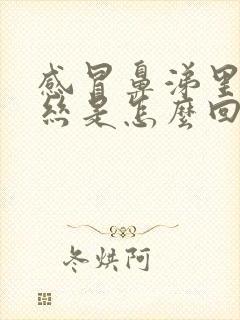 感冒鼻涕里
丝是怎麼回
冬烘阿